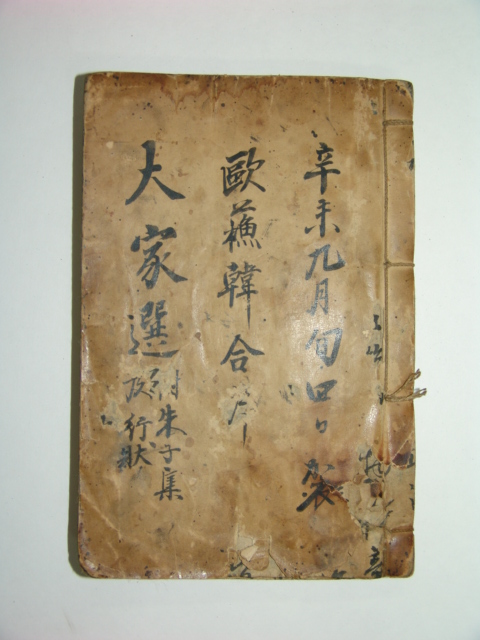 辛未九月旬四日裝
歐蘓韓合
大家選
附朱子集
及行狀